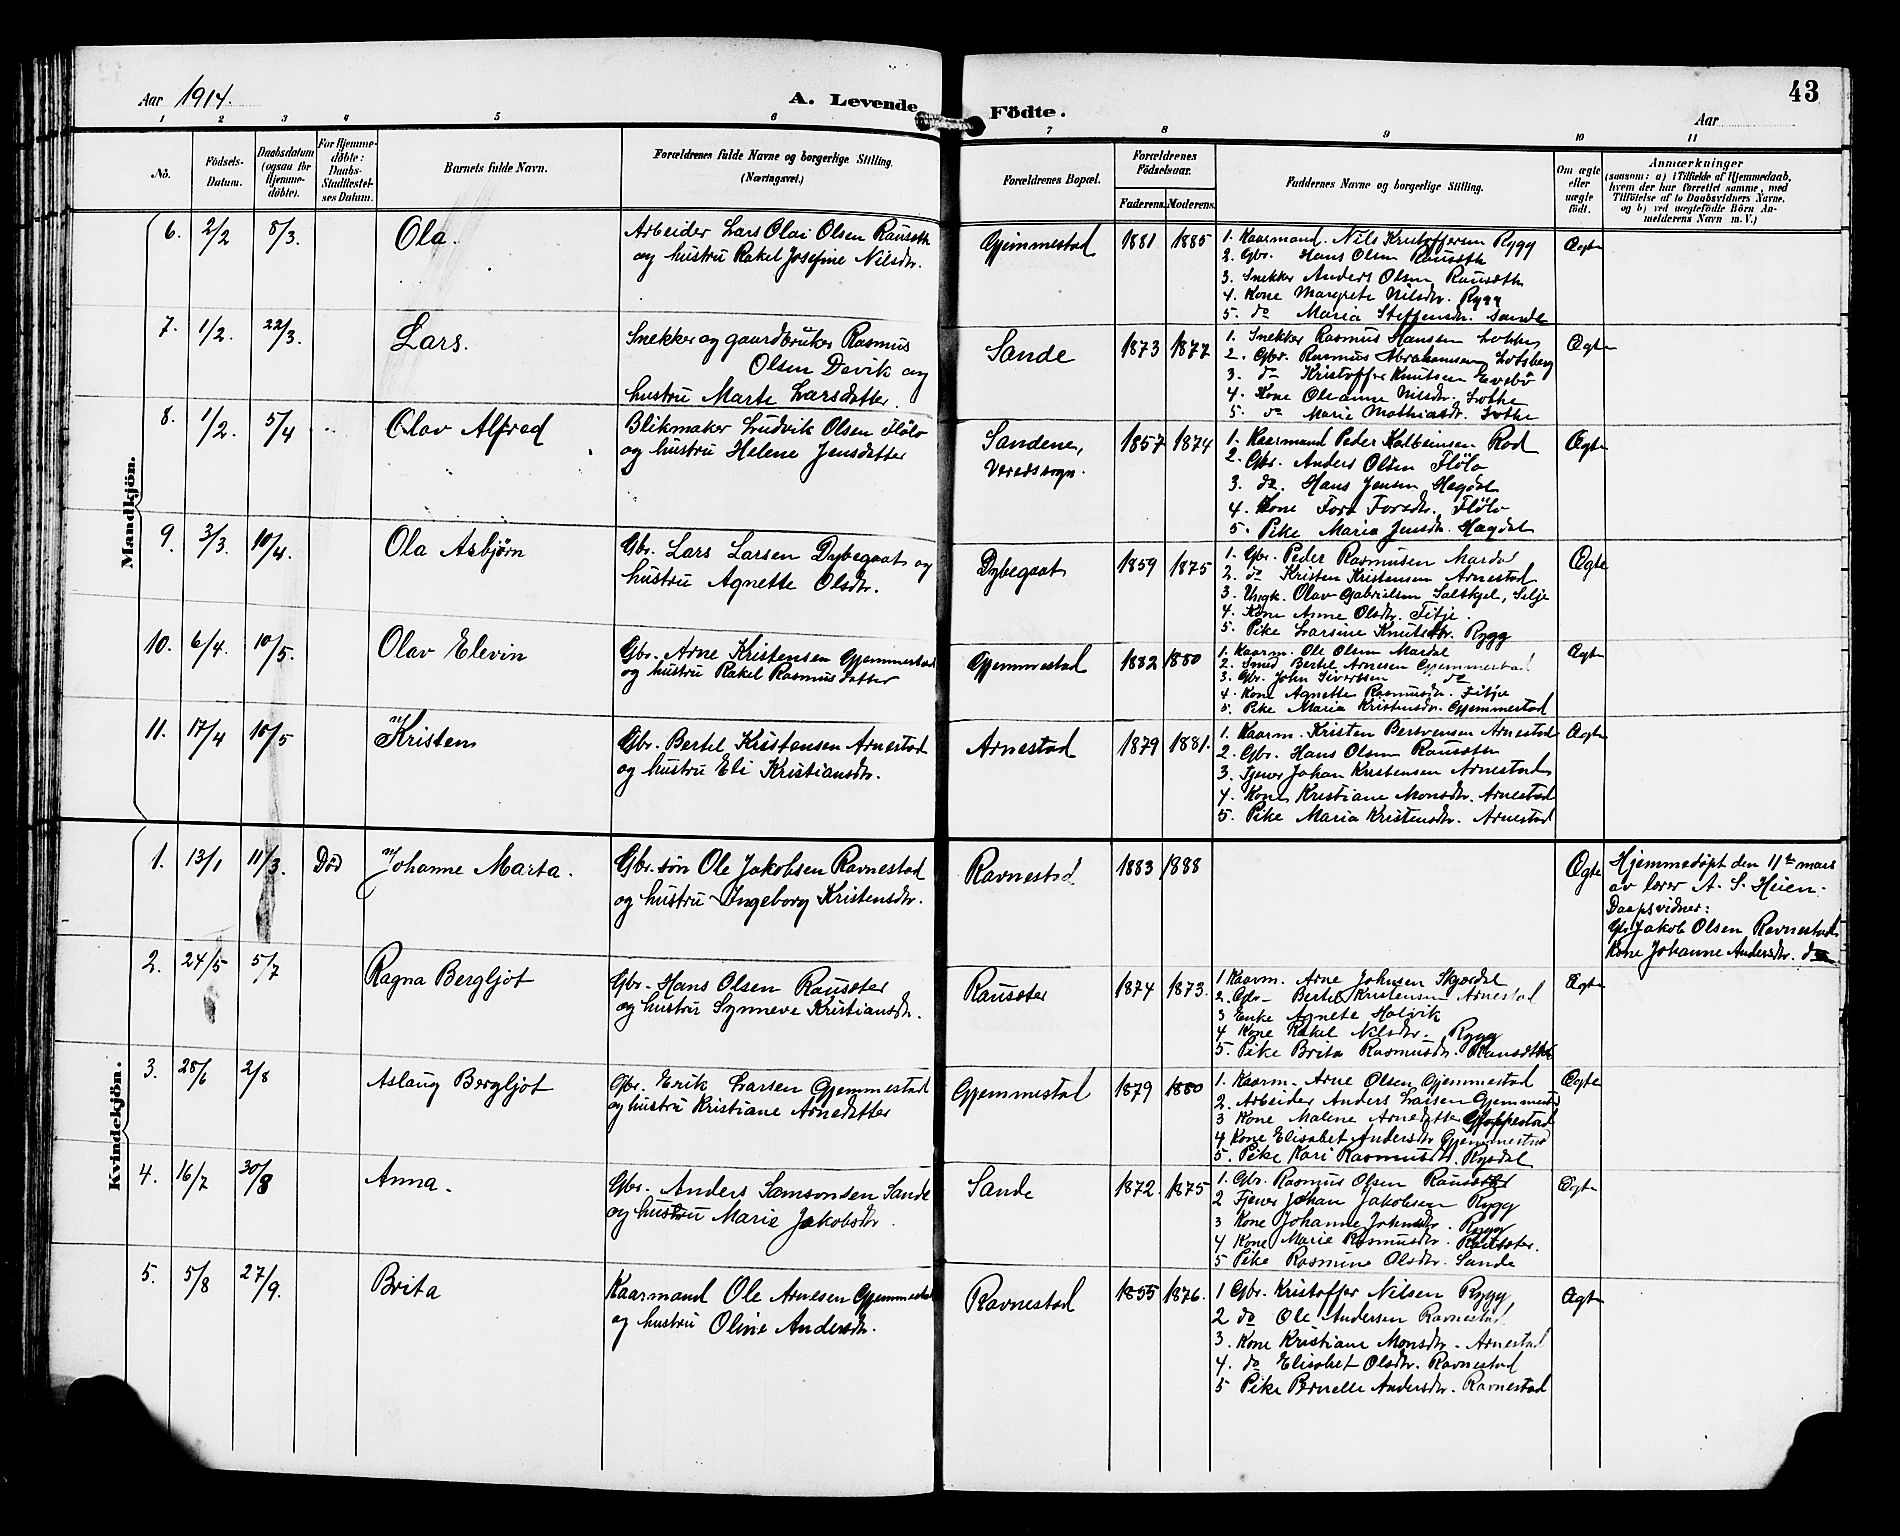 Aar 1914.
A. Levende Födte.
43
Aar
1 2 3 4 5 6 7 8 9 10 11
No.
Födsels-Datum.
Daabsdatum (ogsaa for Hjemmedöbte).
For Hjemmedöbte: Daabs-Stadfæstelses Datum.
Barnets fulde Navn.
Forældrenes fulde Navne og borgerlige Stilling.
(Næringsvei.)
Forældrenes Bopæl.
Forældrenes Födselsaar.
Faderens. Moderens.
Faddernes Navne og borgerlige Stilling.
Om ægte eller uægte födt.
Anmærkninger
(saasom: a) i Tilfælde af Hjemmedaab,
hvem der har forrettet samme, med
Tilföielse af to Daabsvidners Navne.
og b) ved uægtefödte Börn An-
melderens Navn m. V.)
Mandkjön.
6. 2/2 8/3. Ola.
Arbeider Lars Olai Olsen Rauseth
og hustru Rakel Josefine Nilsdtr.
Gjemmestad 1881 1885
1. Kaarmand. Nils Kristoffersen Rygg
2. Gbr. Hans Olsen Rauseth
3. Snekker Anders Olsen Rauseth
4. Kone Margrete Nilsdtr. Rygg
5. do Maria Steffensdtr. Sande
Ægte
7. 1/2. 22/3. Lars.
Snekker og gaardbruker Rasmus
Olsen Devik og
hustru Marte Larsdatter.
Sande 1873 1877
1. Snekker Rasmus Hanssen
2. Gbr. Rasmus Abrahamsen Lotsberg
3. do Kristoffer Knutsen Evebö
4. Kone Oleanne Nilsdtr. Lothe
5. do Marie Mathiasdtr. Lothe
Ægte
8. 1/2. 5/4 Olav Alfred
Blikmaker Ludvik Olsen Flölo
og hustru Helene Jensdatter
Sandene,
Vereidssogn. 1857 1874
1. Kaarmand Peder Kolbeinsen Rod
2. Gbr. Anders Olsen Flölo
3. do. Hans Jensen Hegdal
4. Kone Tora Toredtr. Flölo
5. Pike Maria Jensdtr. Hægdal
Ægte
9. 3/3. 10/4. Ola Asbjørn
Gbr. Lars Larsen Dybegaat og
hustru Agnette Olsdtr.
Dybegaat 1859 1875
1. Gbr. Peder Rasmusen Mardal
2. do Kristen Kristensen Arnestad
3. Ungk. Olav Gabrielsen Salthjel, Selje
4. Kone Anne Olsdtr. Fitje.
5. Pike Larsine Knutsdtr. Rygg
Ægte
10. 6/4. 10/5. Olav Elevin
Gbr. Arne Kristensen Gjemmestad
og hustru Rakel Rasmusdatter
Gjemmestad 1882 1880
1. Kaarm. Ole Olsen Mardal
2. Smed Bertel Arnesen Gjemmestad
3. Gbr. John Sivertsen do
4. Kone Agnette Rasmusdtr. Fitje
5. Pike Maria Kristensdtr. Gjemmestad
Ægte
11. 17/4 10/5 Kristen
Gbr. Bertel Kristensen Arnestad
og hustru Eli Kristiansdtr.
Arnestad 1879 1881.
1. Kaarm. Kristen Bertensen Arnestad
2. Gbr. Hans Olsen Rausster
3. Tjener Johan Kristensen Arnestad
4. Kone Kristiane Monsdtr. Arnestad
5. Pike Maria Kristensdtr. Arnestad
Ægte
Kvindekjön.
1. 13/1 11/3. Død Johanne Marta.
Gbr. søn Ole Jakobsen Ravnestad
og hustru Ingeborg Kristensdtr.
Ravnestad 1883 1888
Ægte
Hjemmedøpt den 11te mars
av lærer A. S. Heien.
Daapsvidner:
Gbr Jakob Olsen Ravnestad
Kone Johanne Andersdtr. do
2. 24/5 5/7 Ragna Bergljot
Gbr. Hans Olsen Rausster
og hustru Synneve Kristiansdtr.
Rausster 1874 1873.
1 Kaarm. Arne Johnsen Skjerdal
2. Gbr. Bertel Kristensen Arnestad
3 Enke Agnete Holvik
4 Kone Rakel Nilsdtr. Rygg
5. Pike Brita Rasmusdtr.
Ægte
3. 28/6 2/8 Aslaug Bergljot
Gbr. Erik Larsen Gjemmestad
og hustru Kristiane Arnedatter
Gjemmestad 1879 1880
1. Kaarm. Arne Olsen Gjemmestad
2. Arbeider Anders Larsen Gjemmestad
3 Kone Malene Arnedatter
4 Kone Elisabet Andersdtr Gjemmestad
5. Pike Kari Rasmusdtr. Rygdal
Ægte
4. 16/7 30/8 Anna.
Gbr. Anders Samsonsen Sande
og hustru Marie Jakobsdtr.
Sande 1872. 1875
1. Gbr. Rasmus Olsen Rausster
2 Tjener Johan Jakobsen Rygg
3 Kone Johanne Johnsdtr. Rygg
4 Kone Marie Rasmusdtr. Rausster.
5 Pike Rasmine Olsdtr. Sande
Ægte
5. 5/8 27/9. Brita
Kaarmand Ole Arnesen Gjemmestad
og hustru Oline Andersdtr.
Ravnestad 1855 1876.
1 Gbr. Kristoffer Nilsen Rygg
2 do Ole Andersen Ravnestad
3. Kone Kristiane Monsdtr. Arnestad
4. do Elisabet Olsdtr. Ravnestad
5 Pike Pernelle Andersdtr. Ravnestad
Ægte